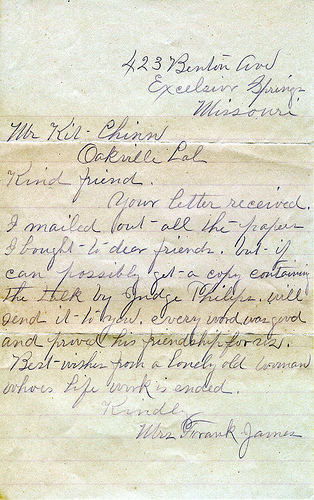 423 Benton Ave
Excelsior Springs
Missouri
Mr Kit Chinn
Oakville Cal
Kind friend.
Your letter received.
I mailed out all the papers
I bought to dear friends. but if
can possibly get a copy containing
the talk by Judge Philips. will
send it to you. every word was good
and proved his friendship for us.
Best wishes from a lonely old woman
whoes life work is ended.
Kindly
Mrs Frank James